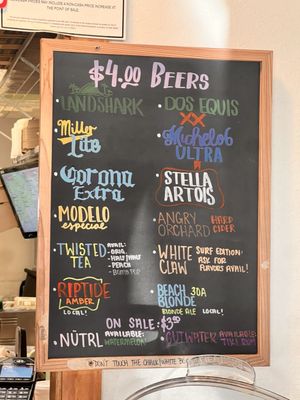 PRICES MAY INCLUDE A NON-CASH PRICE INCREASE AT
THE POINT OF SALE.
$4.00 BEERS
LANDSHARK
DOS EQUIS
XX
Miller
Lite
Michelob
ULTRA
Corona
Extra
STELLA
ARTOIS
MODELO
especial
ANGRY
ORCHARD
HARD
CIDER
TWISTED
TEA
AVAIL:
- ORIG.
- HALF/HALF
- PEACH
WHITE
CLAW
SURF EDITION:
ASK FOR
FLAVORS AVAIL!
RIPTIDE
AMBER
LOCAL!
BEACH
BLONDE
30A
BLONDE ALE LOCAL!
ON SALE: $3.50
NÜTRL
AVAILABLE:
WATERMELON
CUTWATER
AVAILABLE:
TIKI RUM
DON'T TOUCH THE CHALK/WHITE